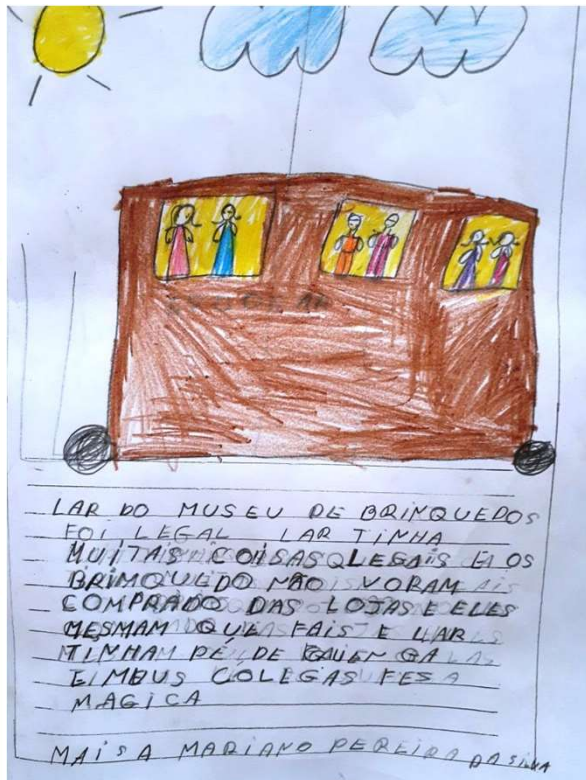 LAR DO MUSEU DE BRINQUEDOS
FOI LEGAL LAR TINHA
MUITAS COISAS LEGAIS E OS
BRIMQUEDO NÃO VORAM
COMPRADO DAS LOJAS E ELES
MESMAM QUE FAIS E LIAR
TINHAM PÉ DE
EIMBUS COLEGAS FES A
MAGICA
MAISA MARIANO PEREIRA DA SILVA